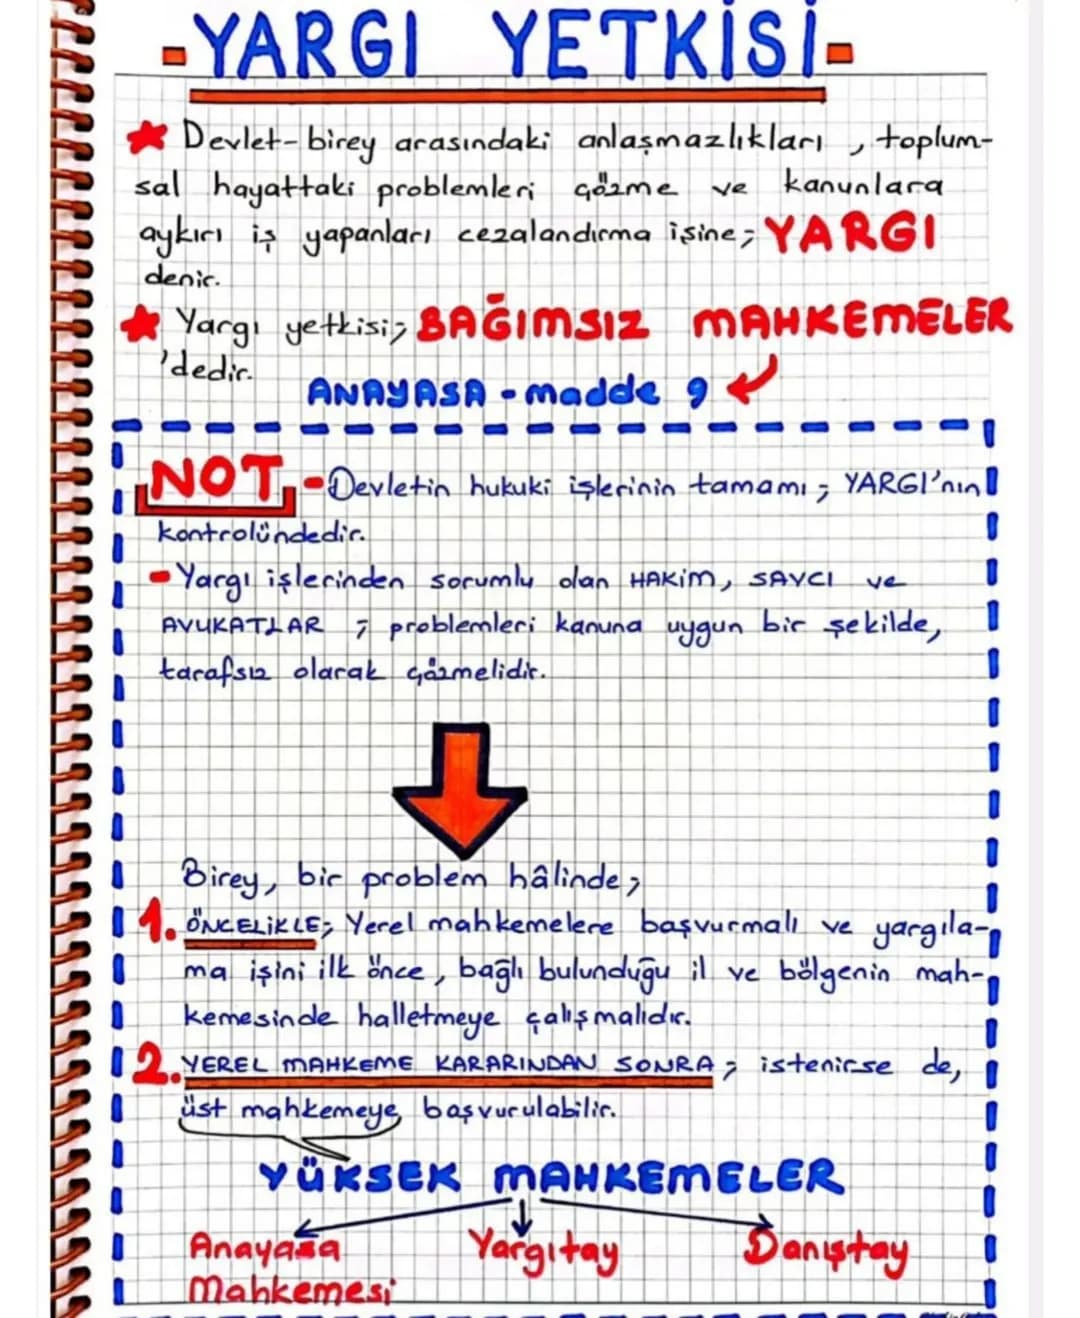 -YARGI YETKİSİ-
★ Devlet-birey arasındaki anlaşmazlıkları, toplum-
sal hayattaki problemleri çözme ve kanunlara
aykırı iş yapanları cezalandırma işine; YARGI
denir.
★ Yargı yetkisi; BAĞIMSIZ MAHKEMELER
'dedir.
ANAYASA - madde 9
NOT -Devletin hukuki işlerinin tamamı; YARGI'nın
kontrolündedir.
- Yargı işlerinden sorumlu olan HAKİM, SAVCI ve
AVUKATLAR ; problemleri kanuna uygun bir şekilde,
tarafsız olarak çözmelidir.
Birey, bir problem hâlinde;
1. ÖNCELİKLE; Yerel mahkemelere başvurmalı ve yargıla-
ma işini ilk önce, bağlı bulunduğu il ve bölgenin mah-
kemesinde halletmeye çalışmalıdır.
2. YEREL MAHKEME KARARINDAN SONRA ; istenirse de,
üst mahkemeye başvurulabilir.
YÜKSEK MAHKEMELER
Anayasa Yargıtay Danıştay
Mahkemesi